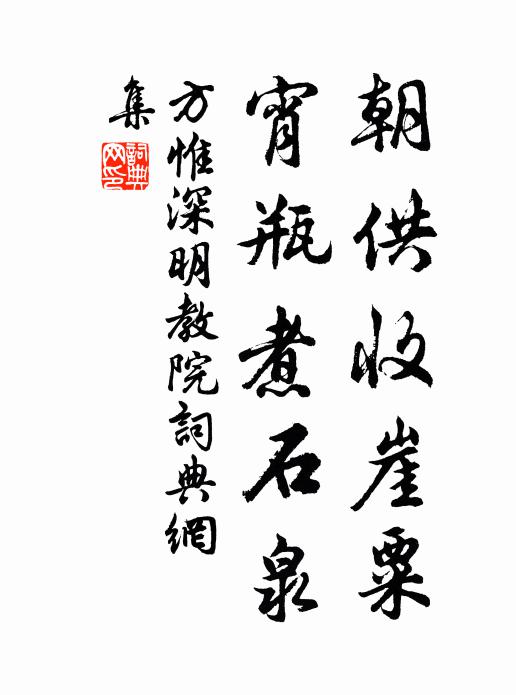 朝供收崖粟
宵瓶煮石泉
方惟深明教院詞典網
集
詞典網印